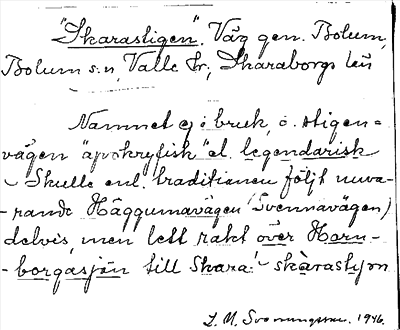 "Skarastigen". Väg gen. Bolum,
Bolum s:n, Valle hr, Skaraborgs län
Namnet ej i bruk, o. stigen =
vägen "apokryfisk" el. legendarisk
- Skulle enl. traditionen följt nuva-
-rande Häggumavägen (Svennavägen)
delvis, men lett rakt över Horn-
-borgasjön till Skara.
L. M. Svenungsson. 1946.